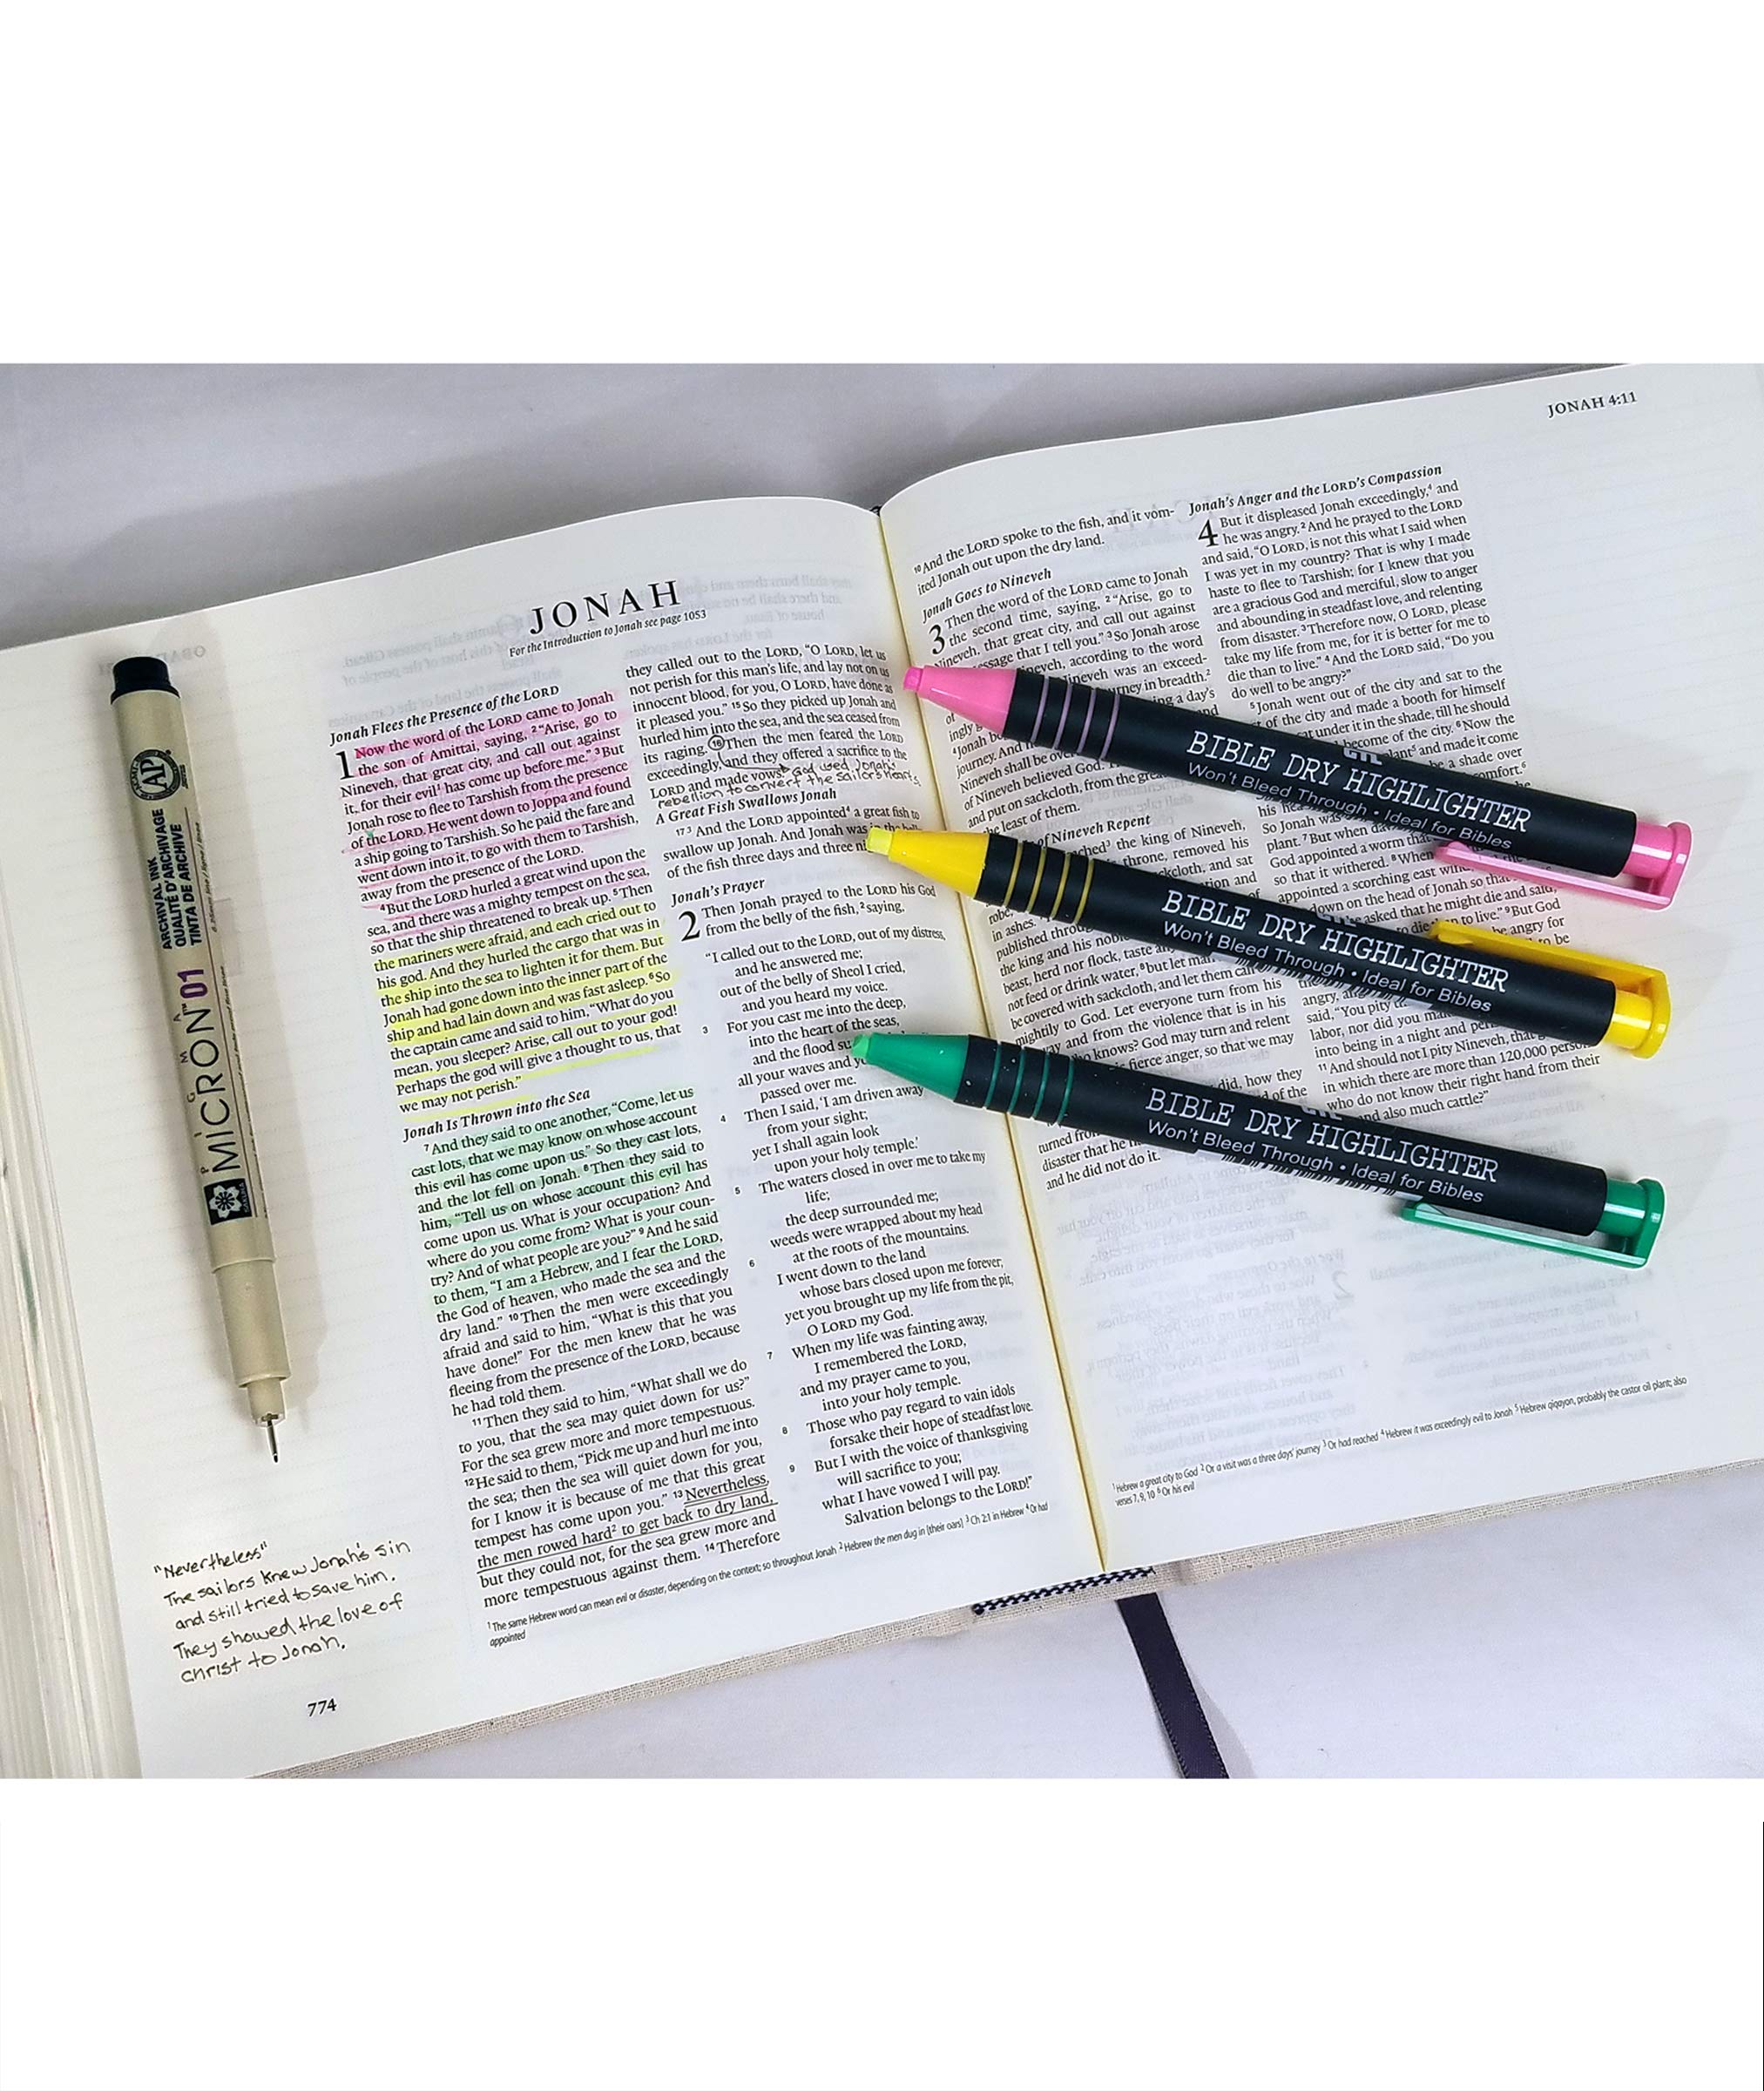 JONAH 4:11
JONAH
For the Introduction to Jonah see page 1053
Jonah Flees the Presence of the LORD
1 Now the word of the LORD came to Jonah
the son of Amittai, saying, 2 “Arise, go to
Nineveh, that great city, and call out against
it, for their evil1 has come up before me.” 3 But
Jonah rose to flee to Tarshish from the presence
of the LORD. He went down to Joppa and found
a ship going to Tarshish. So he paid the fare and
went down into it, to go with them to Tarshish,
away from the presence of the LORD.
4 But the LORD hurled a great wind upon the
sea, and there was a mighty tempest on the sea,
so that the ship threatened to break up. 5 Then
the mariners were afraid, and each cried out to
his god. And they hurled the cargo that was in
the ship into the sea to lighten it for them. But
Jonah had gone down into the inner part of the
ship and had lain down and was fast asleep. 6 So
the captain came and said to him, “What do you
mean, you sleeper? Arise, call out to your god!
Perhaps the god will give a thought to us, that
we may not perish.”
Jonah Is Thrown into the Sea
7 And they said to one another, “Come, let us
cast lots, that we may know on whose account
this evil has come upon us.” So they cast lots,
and the lot fell on Jonah. 8 Then they said to
him, “Tell us on whose account this evil has
come upon us. What is your occupation? And
where do you come from? What is your coun-
try? And of what people are you?” 9 And he said
to them, “I am a Hebrew, and I fear the LORD,
the God of heaven, who made the sea and the
dry land.” 10 Then the men were exceedingly
afraid and said to him, “What is this that you
have done!” For the men knew that he was
fleeing from the presence of the LORD, because
he had told them.
11 Then they said to him, “What shall we do
to you, that the sea may quiet down for us?”
For the sea grew more and more tempestuous.
12 He said to them, “Pick me up and hurl me into
the sea; then the sea will quiet down for you,
for I know it is because of me that this great
tempest has come upon you.” 13 Nevertheless,
the men rowed hard2 to get back to dry land,
but they could not, for the sea grew more and
more tempestuous against them. 14 Therefore
they called out to the LORD, “O LORD, let us
not perish for this man’s life, and lay not on us
innocent blood, for you, O LORD, have done as
it pleased you.” 15 So they picked up Jonah and
hurled him into the sea, and the sea ceased from
its raging. 16 Then the men feared the LORD
exceedingly, and they offered a sacrifice to the
LORD and made vows. God used Jonah's
rebellion to convert the sailors hearts.
A Great Fish Swallows Jonah
17 3 And the LORD appointed4 a great fish to
swallow up Jonah. And Jonah was in the
of the fish three days and three
Jonah’s Prayer
2 Then Jonah prayed to the LORD his God
from the belly of the fish, 2 saying,
“I called out to the LORD, out of my distress,
and he answered me;
out of the belly of Sheol I cried,
and you heard my voice.
3 For you cast me into the deep,
into the heart of the seas,
and the flood
all your waves and
passed over me.
4 Then I said, ‘I am driven away
from your sight;
yet I shall again look
upon your holy temple.’
5 The waters closed in over me to take my
life;
the deep surrounded me;
weeds were wrapped about my head
6 at the roots of the mountains.
I went down to the land
whose bars closed upon me forever;
yet you brought up my life from the pit,
O LORD my God.
7 When my life was fainting away,
I remembered the LORD,
and my prayer came to you,
into your holy temple.
8 Those who pay regard to vain idols
forsake their hope of steadfast love.
9 But I with the voice of thanksgiving
will sacrifice to you;
what I have vowed I will pay.
Salvation belongs to the LORD!”
1 The same Hebrew word can mean evil or disaster, depending on the context; so throughout Jonah 2 Hebrew the men dug in [their oars] 3 Ch 2:1 in Hebrew 4 Or had
appointed
"Nevertheless"
The sailors knew Jonah's sin
and still tried to save him.
They showed the love of
Christ to Jonah.
774
10 And the LORD spoke to the fish, and it vom-
ited Jonah out upon the dry land.
Jonah Goes to Nineveh
3 Then the word of the LORD came to Jonah
the second time, saying, 2 “Arise, go to
Nineveh, that great city, and call out against
message that I tell you.” 3 So Jonah arose
Nineveh, according to the word
Nineveh was an exceed-
journey in breadth.2
a day’s
journey. And
Nineveh shall be
of Nineveh believed God.
and put on sackcloth, from the
the least of them.
of Nineveh Repent
reached3 the king of Nineveh,
throne, removed his
and sat
and
in ashes.
published
the king and his
beast, herd nor flock, taste
not feed or drink water, 8 but let man
be covered with sackcloth, and let them call
mightily to God. Let everyone turn from his
way and from the violence that is in his
knows? God may turn and relent
fierce anger, so that we may
did, how they
of the
turned from
disaster that he
and he did not do it.
Jonah’s Anger and the LORD’s Compassion
4 But it displeased Jonah exceedingly,4 and
he was angry. 2 And he prayed to the LORD
and said, “O LORD, is not this what I said when
I was yet in my country? That is why I made
haste to flee to Tarshish; for I knew that you
are a gracious God and merciful, slow to anger
and abounding in steadfast love, and relenting
from disaster. 3 Therefore now, O LORD, please
take my life from me, for it is better for me to
die than to live.” 4 And the LORD said, “Do you
do well to be angry?”
5 Jonah went out of the city and sat to the
of the city and made a booth for himself
sat under it in the shade, till he should
become of the city. 6 Now the
plant5 and made it come
be a shade over
discomfort.6
So Jonah was
plant. 7 But when
God appointed a worm that
so that it withered. 8 When
appointed a scorching east wind,
down on the head of Jonah so that
asked that he might die and said,
to live.” 9 But God
angry for
to be
angry,
said, “You pity
labor, nor did you
into being in a night and
11 And should not I pity Nineveh, that
in which there are more than 120,000 persons
who do not know their right hand from their
and also much cattle?”
1 Hebrew a great city to God 2 Or a visit was a three days’ journey 3 Or had reached 4 Hebrew it was exceedingly evil to Jonah 5 Hebrew qiqayon, probably the castor oil plant; also
verses 7, 9, 10 6 Or his evil
BIBLE DRY HIGHLIGHTER
Won't Bleed Through • Ideal for Bibles
BIBLE DRY HIGHLIGHTER
Won't Bleed Through • Ideal for Bibles
BIBLE DRY HIGHLIGHTER
Won't Bleed Through • Ideal for Bibles
PIGMA
MICRON 01
ARCHIVAL INK
QUALITÉ D'ARCHIVAGE
TINTA DE ARCHIVE
AP
SAKURA